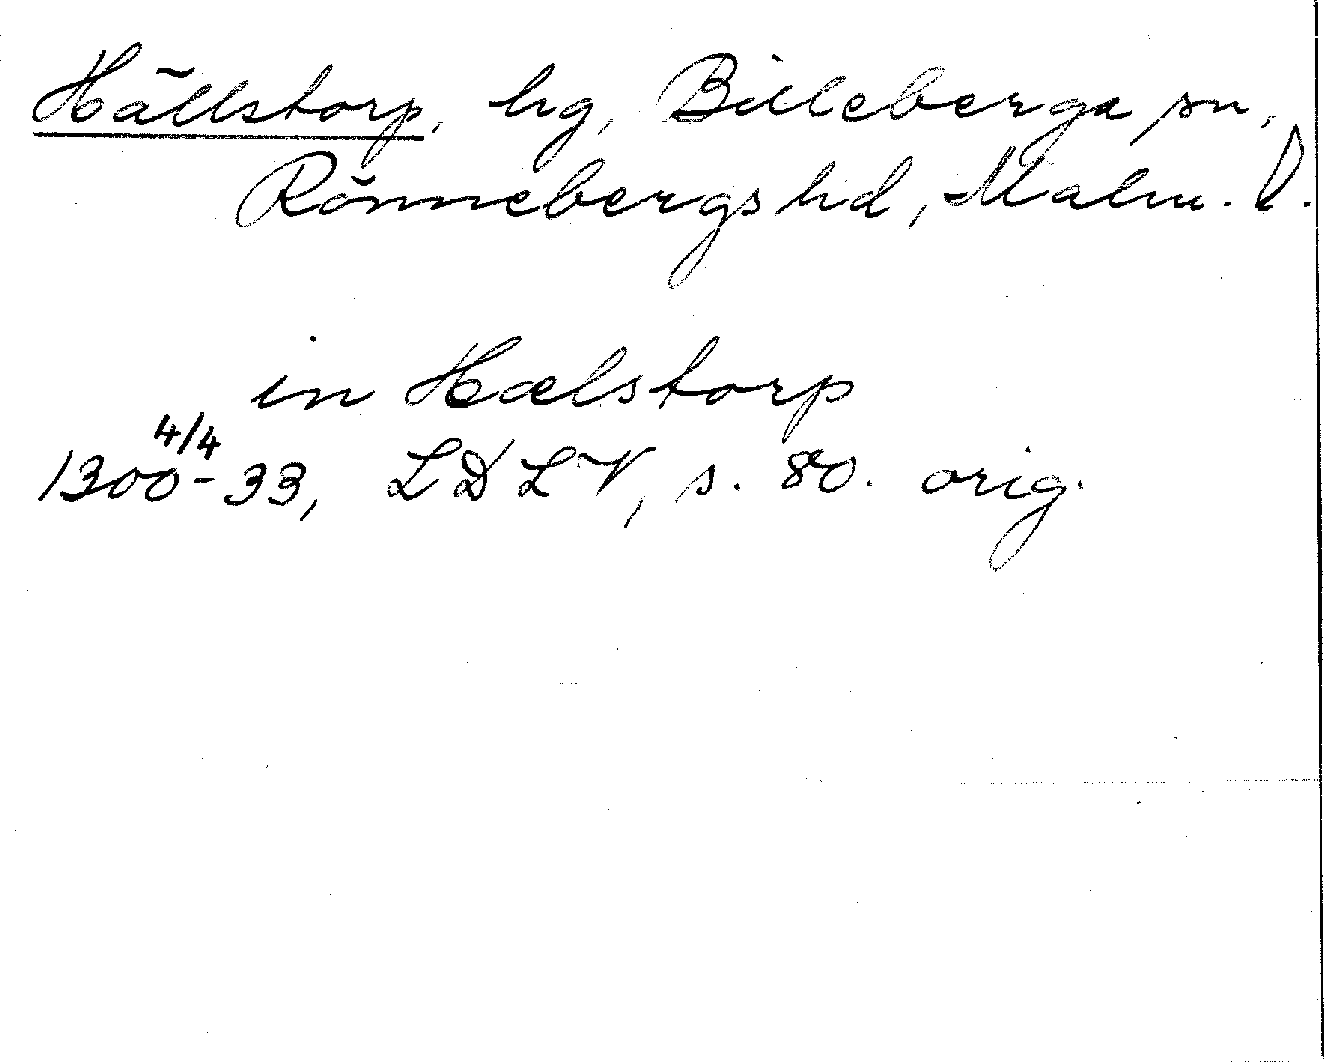 Hällstorp, hg, Billeberga sn,
Rönnebergs hd, Malm. l.
in Hælstorp
1300-4/4 33, LDLV, s. 80. orig.